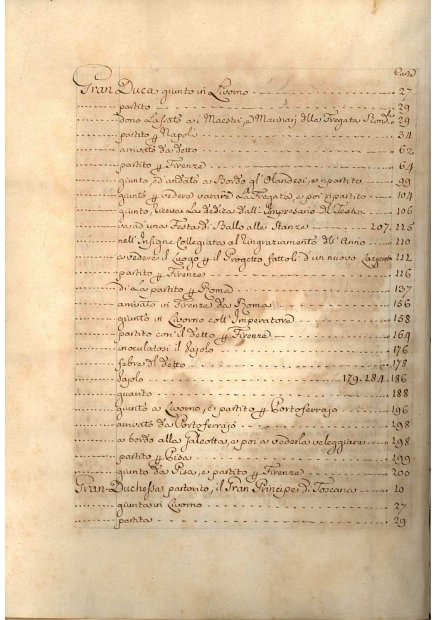 Carte
Gran Duca giunto in Livorno 27
partito 29
dono Lasciato a i Maestri, e Marinari della Fregata 29
partito p Napoli 34
arrivato da detto 62
partito p Firenze 64
giunto, ed andato a Bordo gl'Olandesi, e ripartito 99
giunto p vedere varare La Fregata, e poi ripartito 104
giunto, riceva La dedica dall'Impresario del Teatro 106
va ad una Festa di Ballo alle Stanze 207. 115
nell'Insigne Collegiata al Ringraziamento dell'Anno 110
a vedere il Luogo p il Progetto fattoli d'un nuovo Lazzo 112
partito p Firenze 116
partito p Roma 137
arrivato in Firenze da Roma 156
giunto in Livorno coll'Imperatore 158
partito con il detto p Firenze 164
inoculatosi il Vajolo 176
febre del detto 178
Vajolo 179. 184. 186
188
giunto a Livorno, e partito p Portoferrajo 196
arrivato da Portoferrajo 198
a bordo alla Galeotta, e poi a vederla veleggiare 198
partito p Pisa 199
giunto da Pisa, e partito p Firenze 200
Gran-Duchessa partorito, il Gran Principe di Toscana 10
giunta in Livorno 27
partita 29